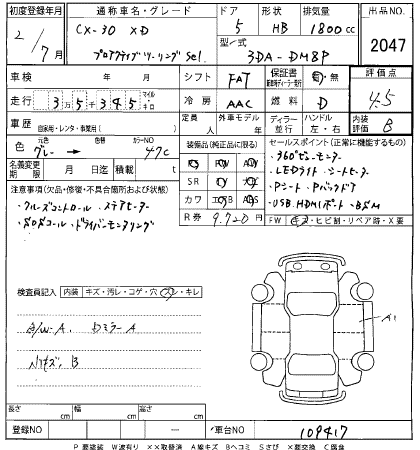 初度登録年月
通称車名・グレード
ドア 形状 排気量
出品NO
2/7月
CX-30 XD
5 HB 1800cc
プロアクティブツーリングsel.
型/式
3DA-DM8P
2047
車検 年 月
シフト FAT
保証書
評価点
走行 35345 マイル キロ
冷房 AAC
燃料 D
4.5
車歴
自家用・レンタ・事業用( )
定員 人
外車モデル 年
ディーラー 並行
ハンドル 左・右
内装評価 B
色 元色 グレー→ 色替 カラーNO 47C
装備品(純正品に限る)
セールスポイント(正常に機能するもの)
・360°モニター
・LEDライト・シートヒーター
・Pシート・Pバックドア
・USB、HDMIポート・BSM
名義変更期限 月 日迄
積載 t
SR
カワ
R券 9,720円
FW キズ・ヒビ割・リペア跡・X要
注意事項(欠品・修復・不具合箇所および状態)
・クルーズコントロール・ステアヒーター
・SOSコール・ドライバーモニタリング
検査員記入
内装 キズ・汚レ・コゲ・穴・スレ・キレ
A/W-A. DミラーA
小キズ. B
A1
長さ cm
幅 cm
高さ cm
登録NO
—
車台NO
109417
P 要塗装 W波有り ××取替済 A線キズ Bヘコミ Sさび ×要交換 C腐食